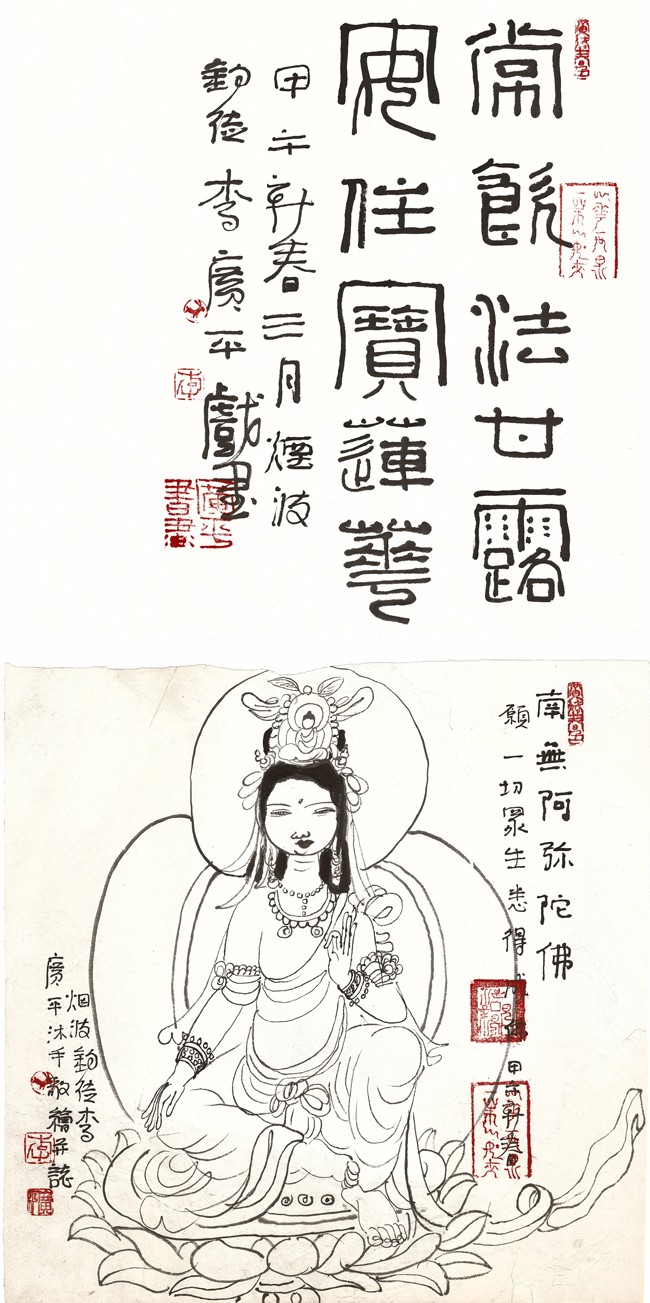 常飲法甘露
安住寶蓮華
甲午新春三月煙波
釣徒李廣平戲畫
李
廣平書畫
南無阿弥陀佛
願一切眾生悉得成佛 甲午新春
烟波釣徒李
廣平沐手敬繪并誌
李